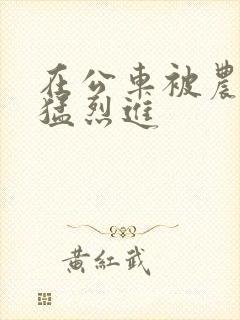 在公車被農
猛烈進
黃紅武